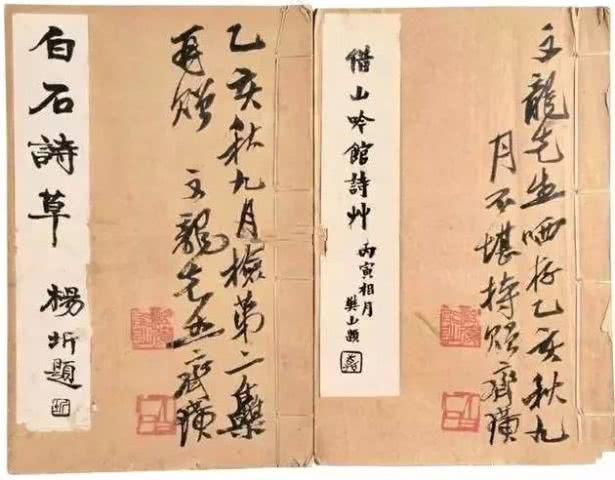 白石詩草
楊圻題
乙亥秋九月檢第二集
再贈 文龍先生 齊璜
借山吟館詩艸
丙寅相月
樊山題
文龍先生哂存乙亥秋九
月不堪持贈齊璜